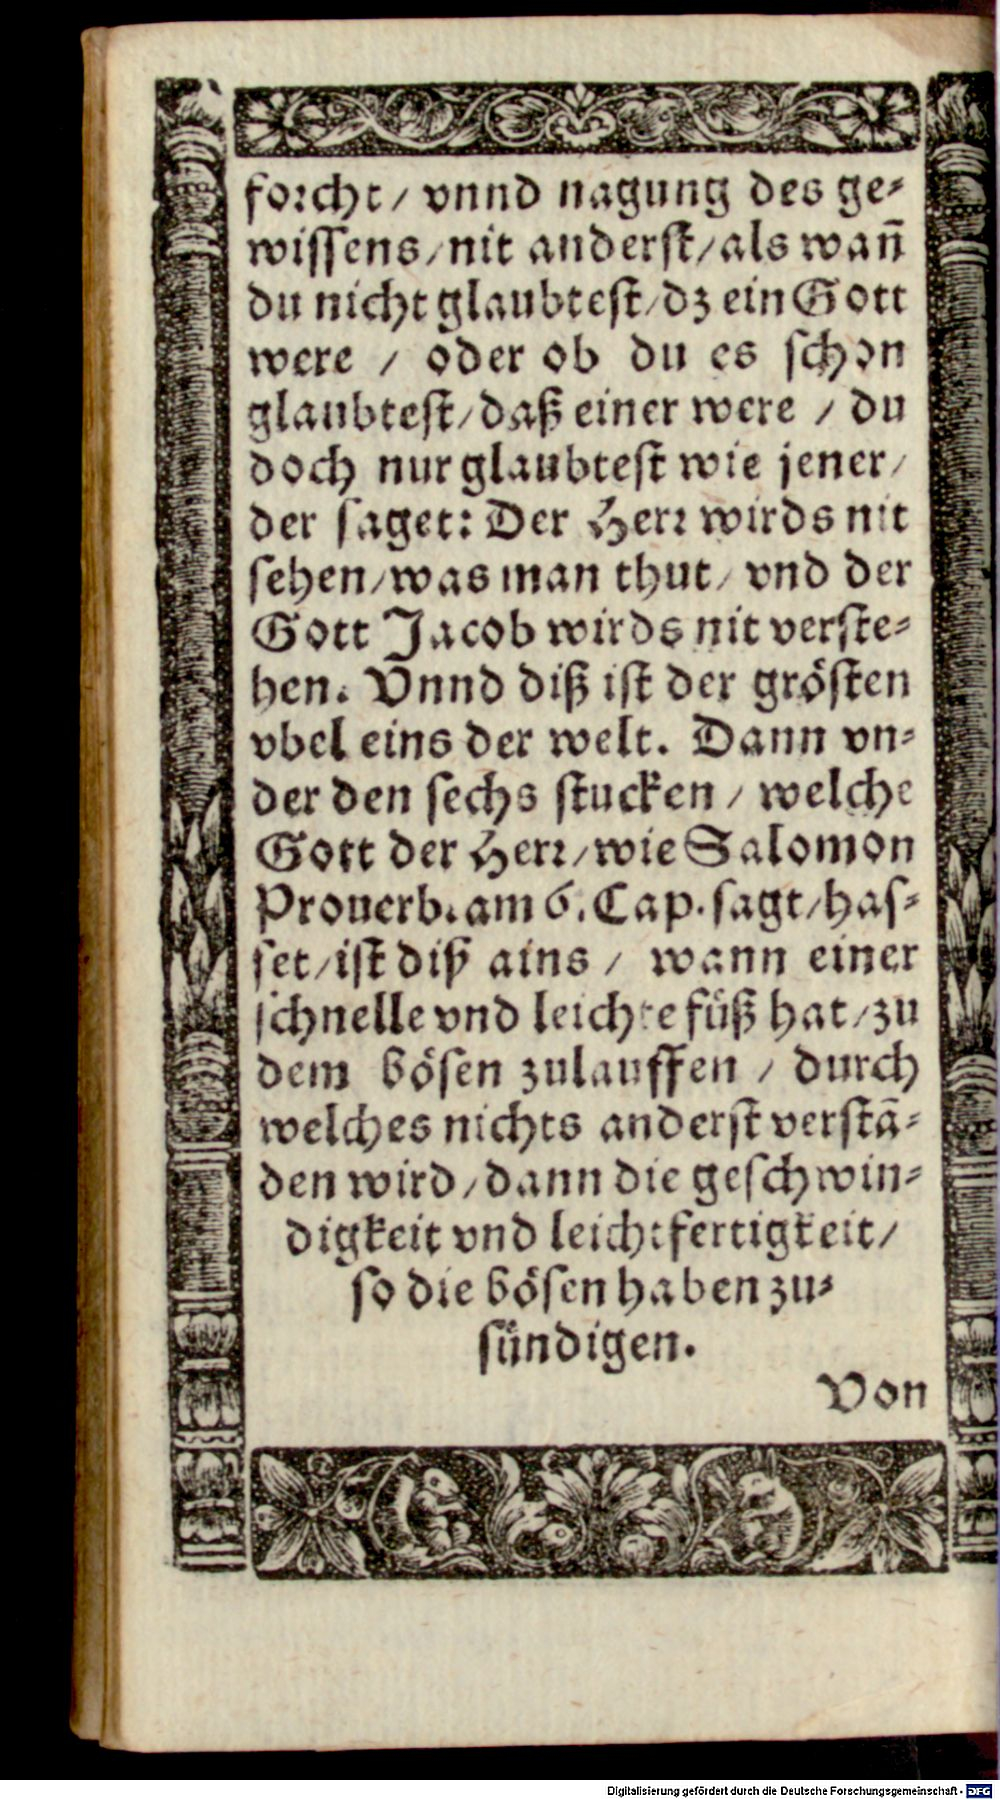 forcht / vnnd nagung des ge⸗
wissens / nit anderst / als wañ
du nicht glaubtest / dz ein Gott
were / oder ob du es schon
glaubtest / daß einer were / du
doch nur glaubtest wie jener /
der saget: Der Herr wirds nit
sehen / was man thut / vnd der
Gott Jacob wirds nit verste⸗
hen. Vnnd diß ist der grösten
vbel eins der welt. Dann vn⸗
der den sechs stucken / welche
Gott der Herr / wie Salomon
Prouerb. am 6. Cap. sagt / has⸗
set / ist diß ains / wann einer
schnelle vnd leichte füß hat / zu
dem bösen zulauffen / durch
welches nichts anderst verstā⸗
den wird / dann die geschwin⸗
digkeit vnd leichtfertigkeit /
so die bösen haben zu⸗
sündigen.
Von
Digitalisierung gefördert durch die Deutsche Forschungsgemeinschaft - DFG